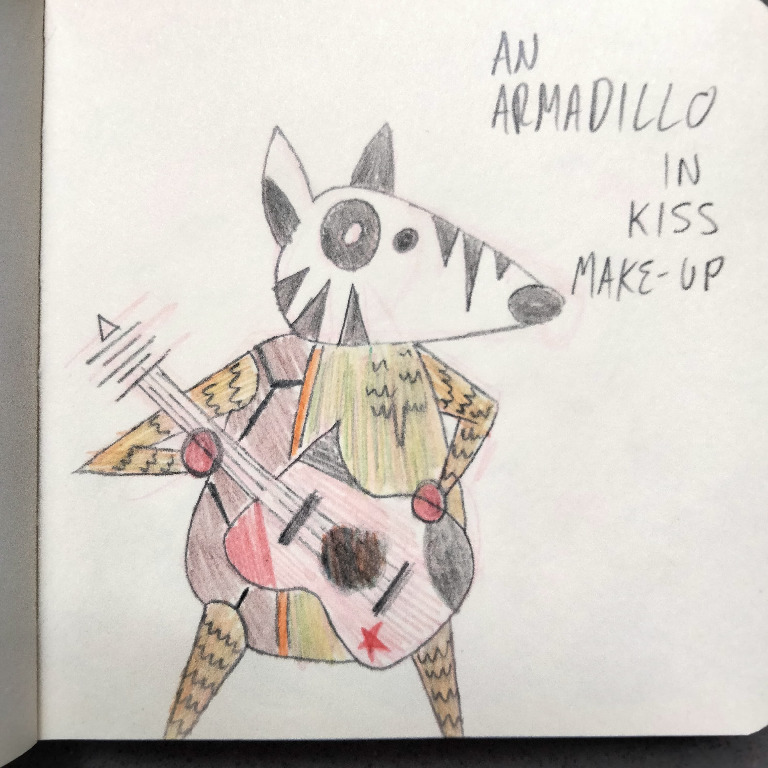 AN
ARMADILLO
IN
KISS
MAKE-UP